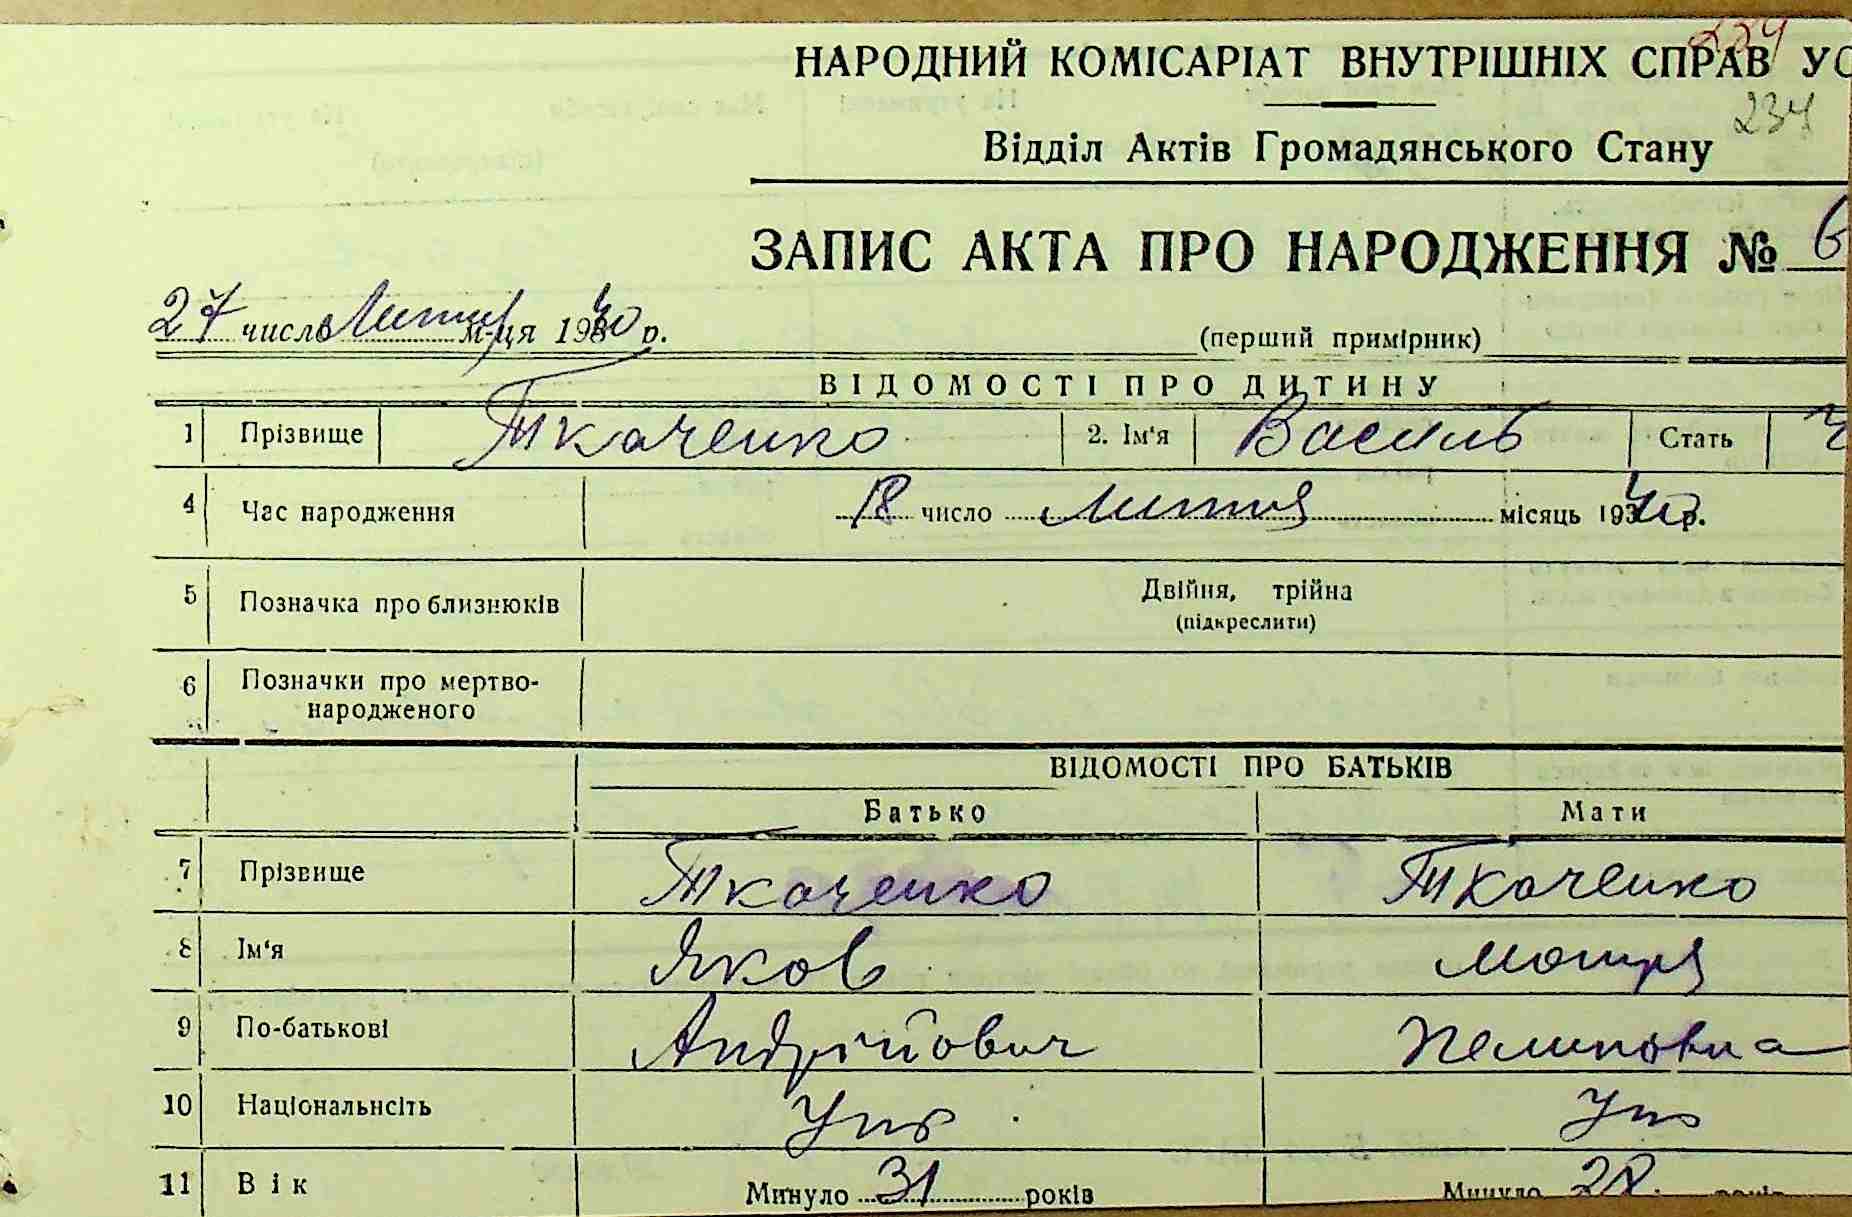 234
НАРОДНИЙ КОМІСАРІАТ ВНУТРІШНІХ СПРАВ УС
234
Відділ Актів Громадянського Стану
ЗАПИС АКТА ПРО НАРОДЖЕННЯ № 6
27 число Лютня м-ця 1940 р.
(перший примірник)
ВІДОМОСТІ ПРО ДИТИНУ
1 Прізвище Ткаченко 2. Ім'я Василь Стать Ч
4 Час народження 18 число Лютня місяць 1940 р.
5 Позначка про близнюків Двійня, трійна
(підкреслити)
6 Позначки про мертво-
народженого
ВІДОМОСТІ ПРО БАТЬКІВ
Батько Мати
7 Прізвище Ткаченко Ткаченко
8 Ім'я Яков Мотря
9 По-батькові Андрійович
10 Національнсіть Укр Укр
11 Вік Минуло 31 років Минуло 28 років